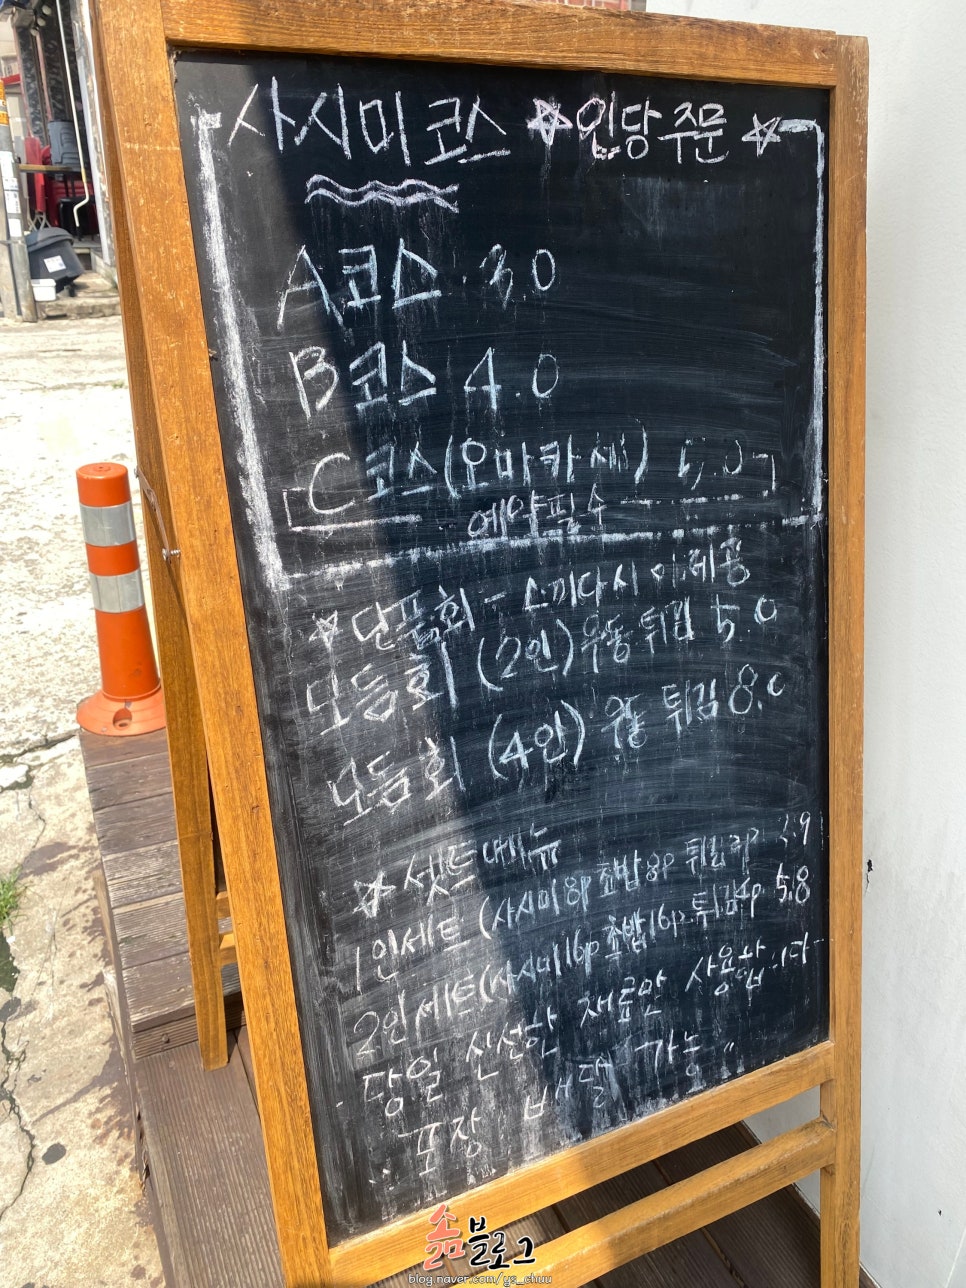 사시미코스 ☆인당주문☆
A코스 3.0
B코스 4.0
C코스(오마카세)
예약필수
☆단품회 - 스끼다시 이제공
모듬회 (2인)우동튀김 5.0
모듬회 (4인) 우동 튀김 8.0
☆셋트메뉴
1인세트(사시미8p 초밥8p 튀김2p .9
2인세트(사시미16p 초밥16p.튀김4p 5.8
당일 신선한 재료만 사용합니다
포장 배달 가능"
솖블로그
blog.naver.com/ys_chuu